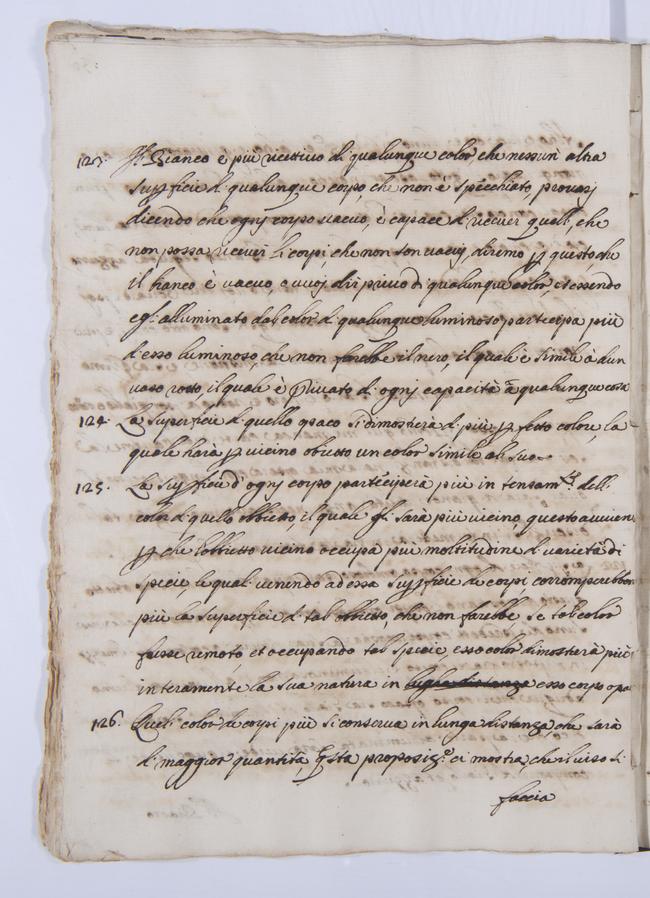 123. Il Bianco è più ricettivo di qualunque color, che nessun altra
superficie di qualunque corpo, che non è specchiato, provasi
dicendo che ogni corpo vacuo, è capace di ricever quelli, che
non possa ricever li corpi, che non son vacui, diremo p questo, che
il bianco è vacuo, o vuoi dir privo di qualunque color, et essendo
egli alluminato dal color di qualunque luminoso participa più
d'esso luminoso, che non farebbe il nero, il quale è simile à d'un
vaso rotto, il quale è privato di ogni capacità à qualunque cosa
124. La superficie di quello opaco si dimosterà di più pfetto colore, la
quale harà p vicino obietto un color simile al suo.
125. La supficie d'ogni corpo participerà più intensamte. dell
color di quello obbietto, il quale gli sarà più vicino, questo avvien
p che l'obbietto vicino occupa più moltitudine di varietà di
specie, le quali venendo ad essa supficie de corpi corromperebbon
più la superficie di tal obbietto, che non farebbe se tal color
fusse remoto, et occupando tal specie esso color dimosterà più
interamente la sua natura in esso corpo opa
126. Quel color de corpi più si conserva in lunga distanza che sarà
di maggior quantità, qsta proposizo. ci mostra, che il viso si
faccia